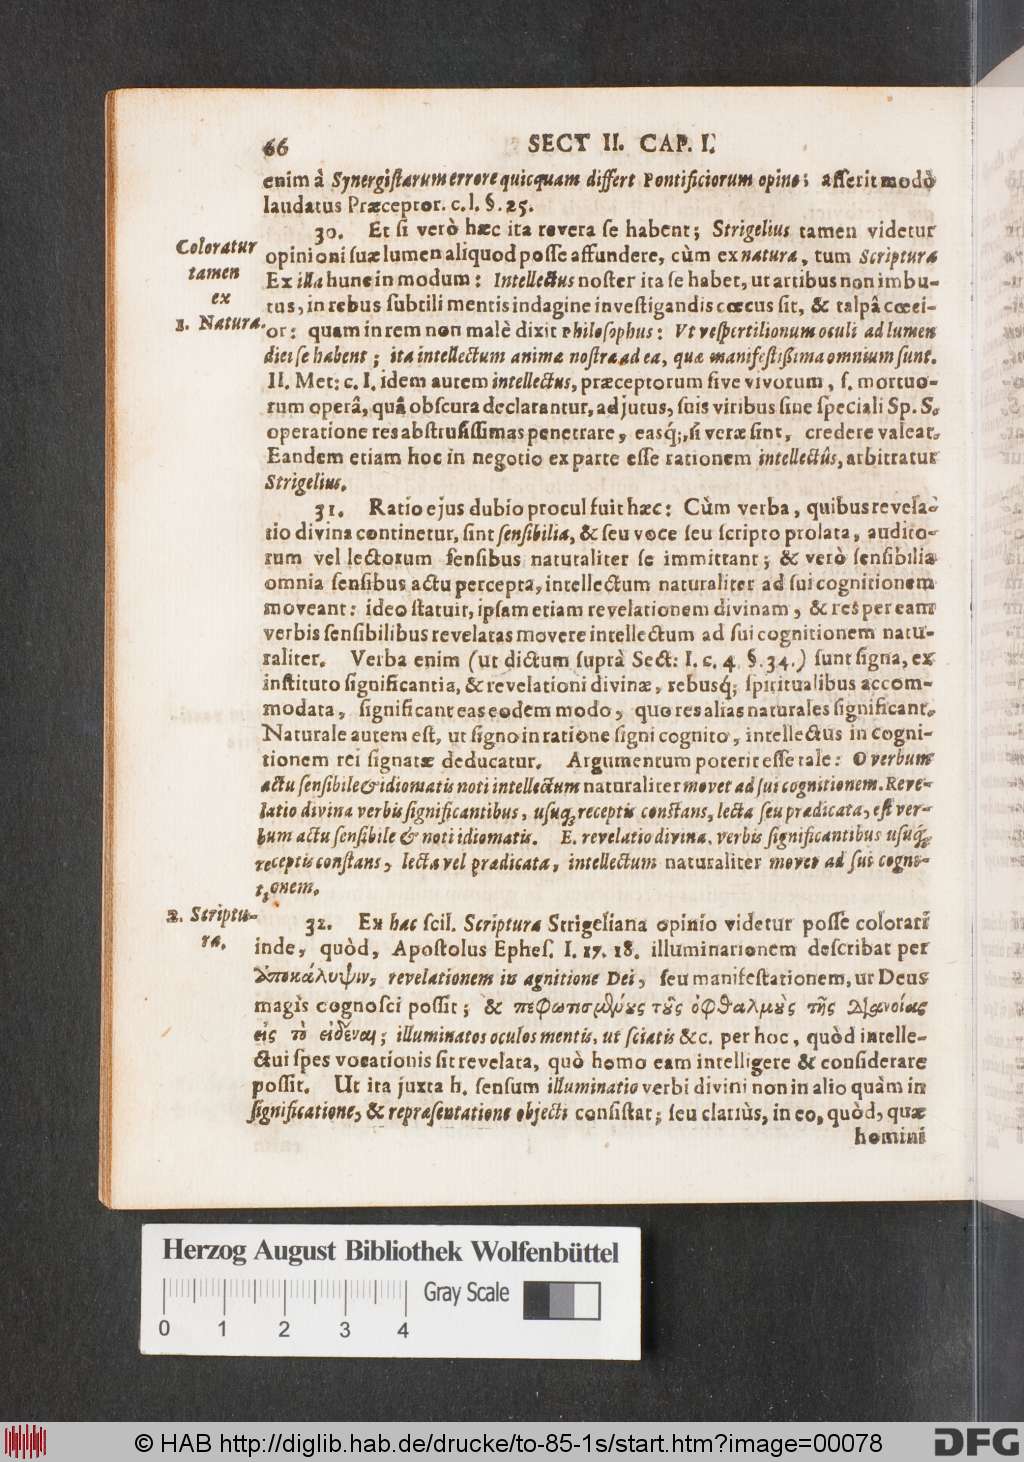 66 SECT II. CAP. I.
enim à Synergistarum errore quicquam differt Pontificiorum opino; asserit modò
laudatus Præceptor. c. l. §. 25.
30. Et si verò hæc ita revera se habent; Strigelius tamen videtur
opinioni suæ lumen aliquod posse affundere, cùm ex natura, tum Scriptura
Ex illa hunc in modum: Intellectus noster ita se habet, ut artibus non imbu-
tus, in rebus subtili mentis indagine investigandis cœcus sit, & talpâ cœci-
or: quam in rem non malè dixit Philosophus: Ut vespertilionum oculi ad lumen
diei se habent; ita intellectum animæ nostræ ad ea, quæ manifestissima omnium sunt.
II. Met: c. I. idem autem intellectus, præceptorum sive vivorum, s. mortuo-
rum operâ, quâ obscura declarantur, adjutus, suis viribus sine speciali Sp. S.
operatione res abstrusissimas penetrare, easq;, si veræ sint, credere valeat.
Eandem etiam hoc in negotio ex parte esse rationem intellectûs, arbitratur
Strigelius.
Coloratur
tamen
ex
1. Natura.
31. Ratio ejus dubio procul fuit hæc: Cùm verba, quibus revela-
tio divina continetur, sint sensibilia, & seu voce seu scripto prolata, audito-
rum vel lectorum sensibus naturaliter se immittant; & verò sensibilia
omnia sensibus actu percepta, intellectum naturaliter ad sui cognitionem
moveant: ideo statuit, ipsam etiam revelationem divinam, & res per eam
verbis sensibilibus revelatas movere intellectum ad sui cognitionem natu-
raliter. Verba enim (ut dictum suprà Sect: I. c. 4. §. 34.) sunt signa, ex
instituto significantia, & revelationi divinæ, rebusq; spiritualibus accom-
modata, significant eas eodem modo, quo res alias naturales significant.
Naturale autem est, ut signo in ratione signi cognito, intellectus in cogni-
tionem rei signatæ deducatur. Argumentum poterit esse tale: O verbum
actu sensibile & idiomatis noti intellectum naturaliter movet ad sui cognitionem. Reve-
latio divina verbis significantibus, usuq; receptis constans, lecta seu prædicata, est ver-
bum actu sensibile & noti idiomatis. E. revelatio divina, verbis significantibus usuq;
receptis constans, lecta vel prædicata, intellectum naturaliter movet ad sui cogni-
tionem.
2. Scriptu-
ra.
32. Ex hac scil. Scriptura Strigeliana opinio videtur posse colorari
inde, quòd, Apostolus Ephes. I. 17. 18. illuminationem describat per
ἀποκάλυψιν, revelationem in agnitione Dei, seu manifestationem, ut Deus
magis cognosci possit; & πεφωτισμένους τοὺς ὀφθαλμοὺς τῆς διανοίας
εἰς τὸ εἰδέναι; illuminatos oculos mentis, ut sciatis &c. per hoc, quòd intelle-
ctui spes vocationis sit revelata, quò homo eam intelligere & considerare
possit. Ut ita juxta h. sensum illuminatio verbi divini non in alio quàm in
significatione, & repræsentatione objecti consistat; seu clariùs, in eo, quòd, quæ
homini
Herzog August Bibliothek Wolfenbüttel
0 1 2 3 4 Gray Scale
© HAB http://diglib.hab.de/drucke/to-85-1s/start.htm?image=00078 DFG